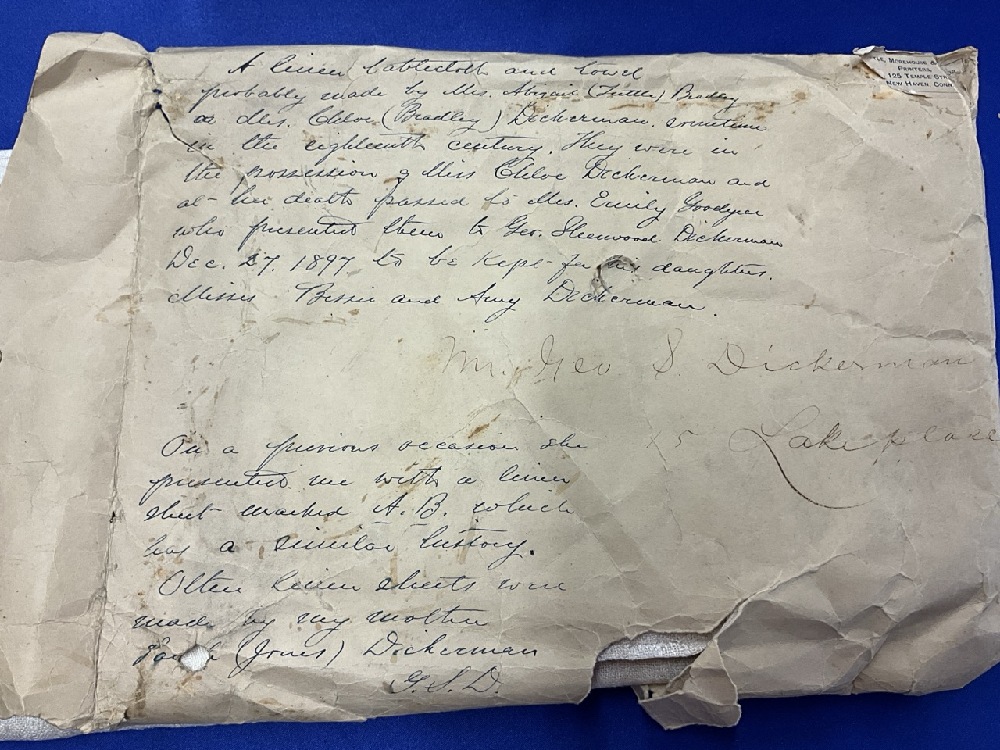 A linen tablecloth and towel
probably made by Mrs. Abigail (Tuttle) Bradley
or Mrs. Chloe (Bradley) Dickerman. sometime
in the eighteenth century. They were in
the possession of Miss Chloe Dickerman and
at her death passed to Mrs. Emily Goodyear
who presented them to Geo. Sherwood Dickerman
Dec. 27. 1897 to be kept for his daughters.
Misses Bessie and Amy Dickerman.
MOREHOUSE &
PRINTERS
195 TEMPLE
NEW HAVEN CONN
Mr. Geo S. Dickerman
Lake place
On a previous occasion she
presented me with a linen
sheet marked A.B. which
has a similar history.
Other linen sheets were
made by my mother
(Jones) Dickerman
G.S.D.